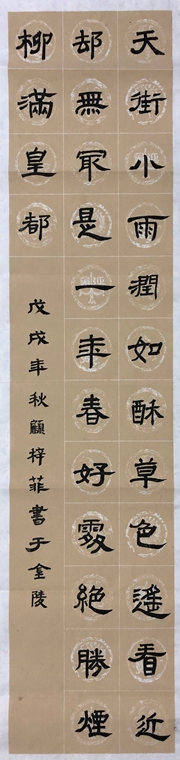 天街小雨潤如酥草色遙看近
却無㝡是一年春好處絕勝煙
柳滿皇都
戊戌年秋顧梓菲書于金陵